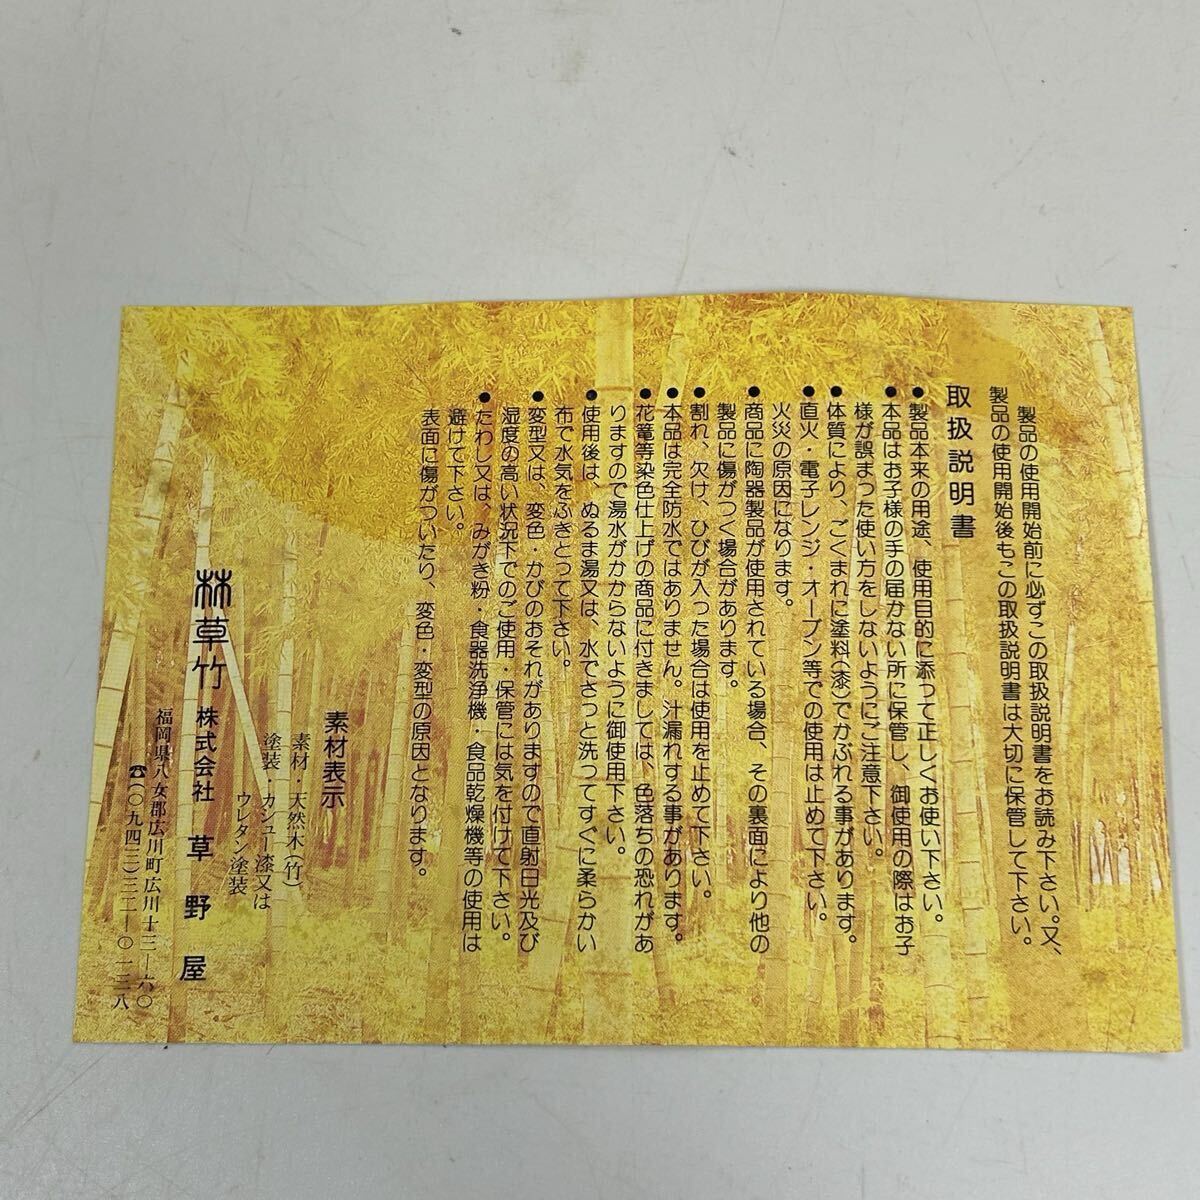 製品の使用開始前に必ずこの取扱説明書をお読み下さい。又、
製品の使用開始後もこの取扱説明書は大切に保管して下さい。
取扱説明書
●製品本来の用途、使用目的に添って正しくお使い下さい。
●本品はお子様の手の届かない所に保管し、御使用の際はお子
様が誤まった使い方をしないようにご注意下さい。
●体質により、ごくまれに塗料(漆)でかぶれる事があります。
●直火・電子レンジ・オーブン等での使用は止めて下さい。
火災の原因になります。
●商品に陶器製品が使用されている場合、その裏面により他の
製品に傷がつく場合があります。
●割れ、欠け、ひびが入った場合は使用を止めて下さい。
●本品は完全防水ではありません。汁漏れする事があります。
●花篭等染色仕上げの商品に付きましては、色落ちの恐れがあ
りますので湯水がかからないように御使用下さい。
●使用後は、ぬるま湯又は、水でさっと洗ってすぐに柔らかい
布で水気をふきとって下さい。
●変型又は、変色・かびのおそれがありますので直射日光及び
湿度の高い状況下でのご使用・保管には気を付けて下さい。
●たわし又は、みがき粉・食器洗浄機・食品乾燥機等の使用は
避けて下さい。
表面に傷がついたり、変色・変型の原因となります。
素材表示
素材・天然木(竹)
塗装・カシュー漆又は
ウレタン塗装
林草竹 株式会社 草野屋
福岡県八女郡広川町広川十三ー六〇
☎(〇九四三)三二ー〇一三八